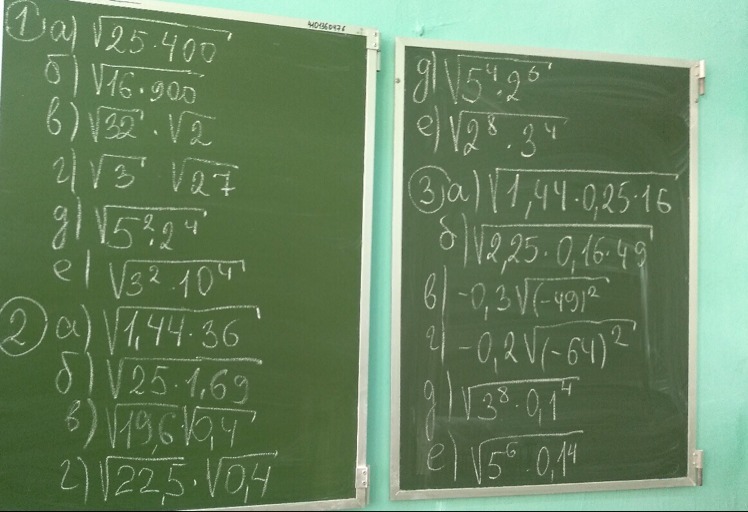 1 а) √25·400
б) √16·900
в) √32 · √2
г) √3 √27
д) √5²·2⁴
е) √3²·10⁴
2 а) √1,44·36
б) √25·1,69
в) √19,6 √0,4
г) √22,5 · √0,4
д) √5⁴·2⁶
е) √2⁸·3⁴
3 а) √1,44·0,25·16
б) √2,25·0,16·49
в) -0,3√(-49)²
г) -0,2√(-64)²
д) √3⁸·0,1⁴
е) √5⁶·0,1⁴